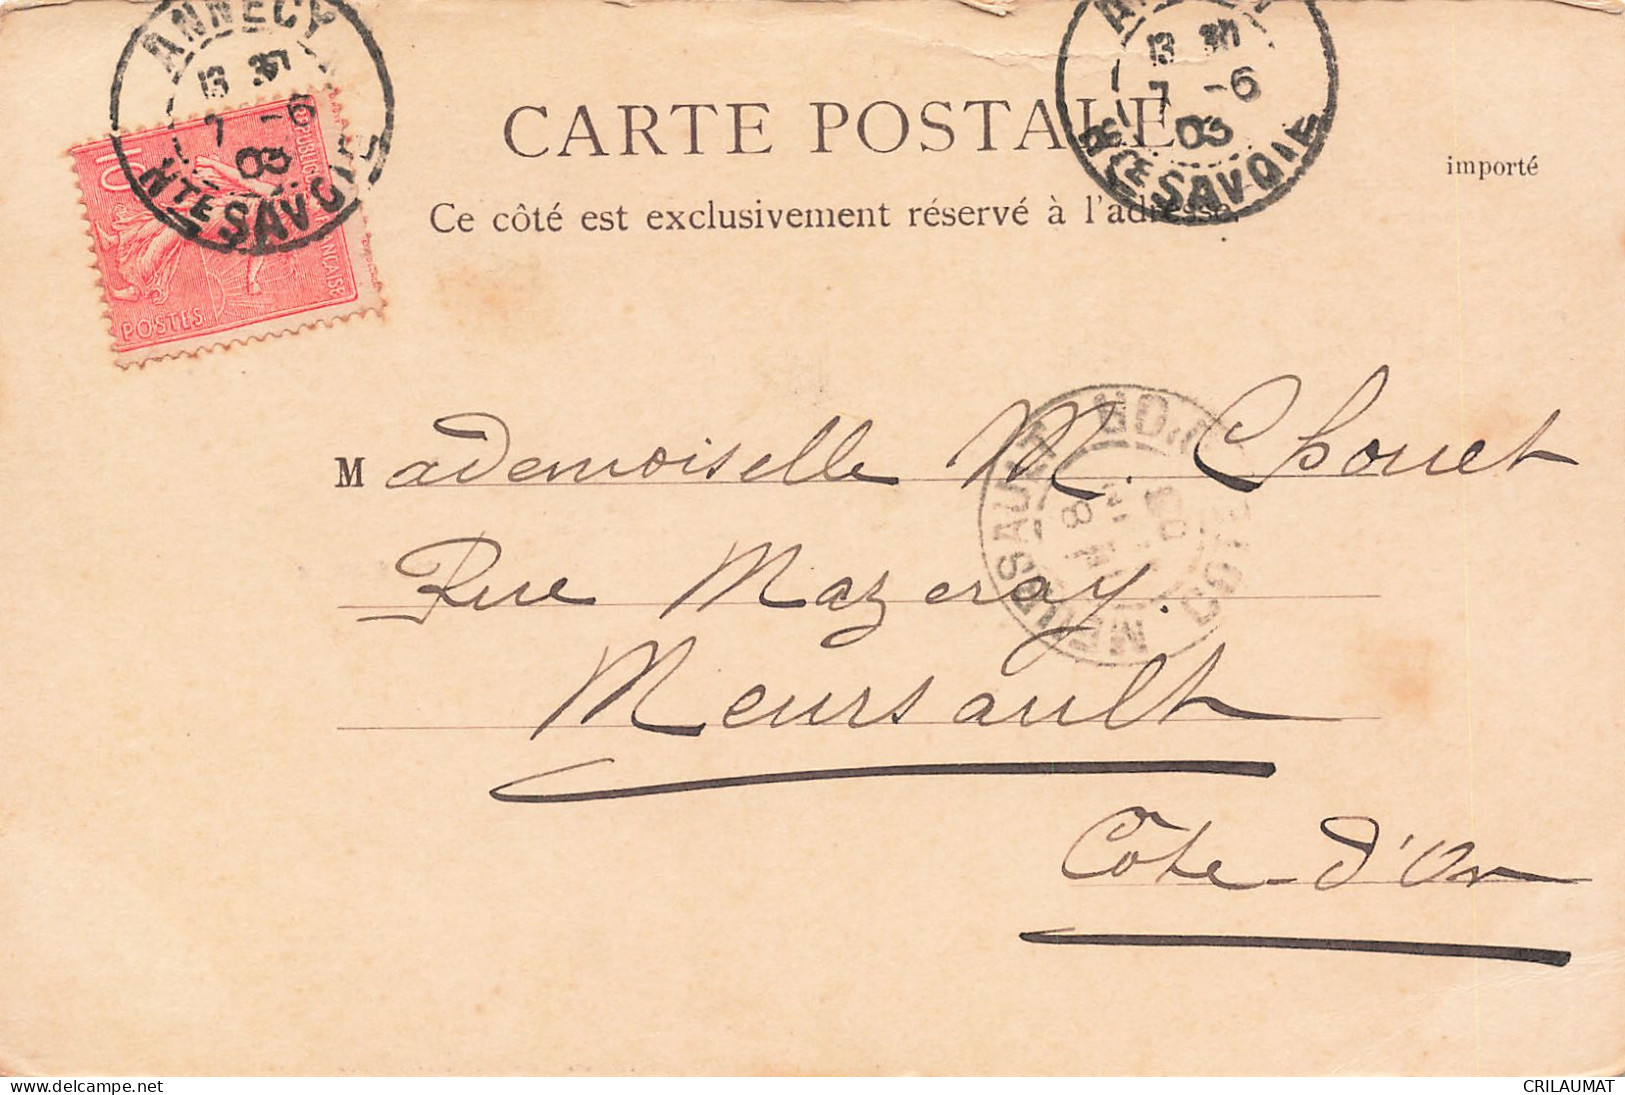 ANNECY
13 30
7 -6
03
HTE SAVOIE
13 30
7 -6
03
HTE SAVOIE
10c
REPUBLIQUE FRANÇAISE
POSTES
CARTE POSTALE
importé
Ce côté est exclusivement réservé à l'adresse.
Mademoiselle M. Chouet
Rue Mazeray.
Meursault
Côte-d'Or
MEURSAULT
8
COTE D'OR
www.delcampe.net
CRILAUMAT